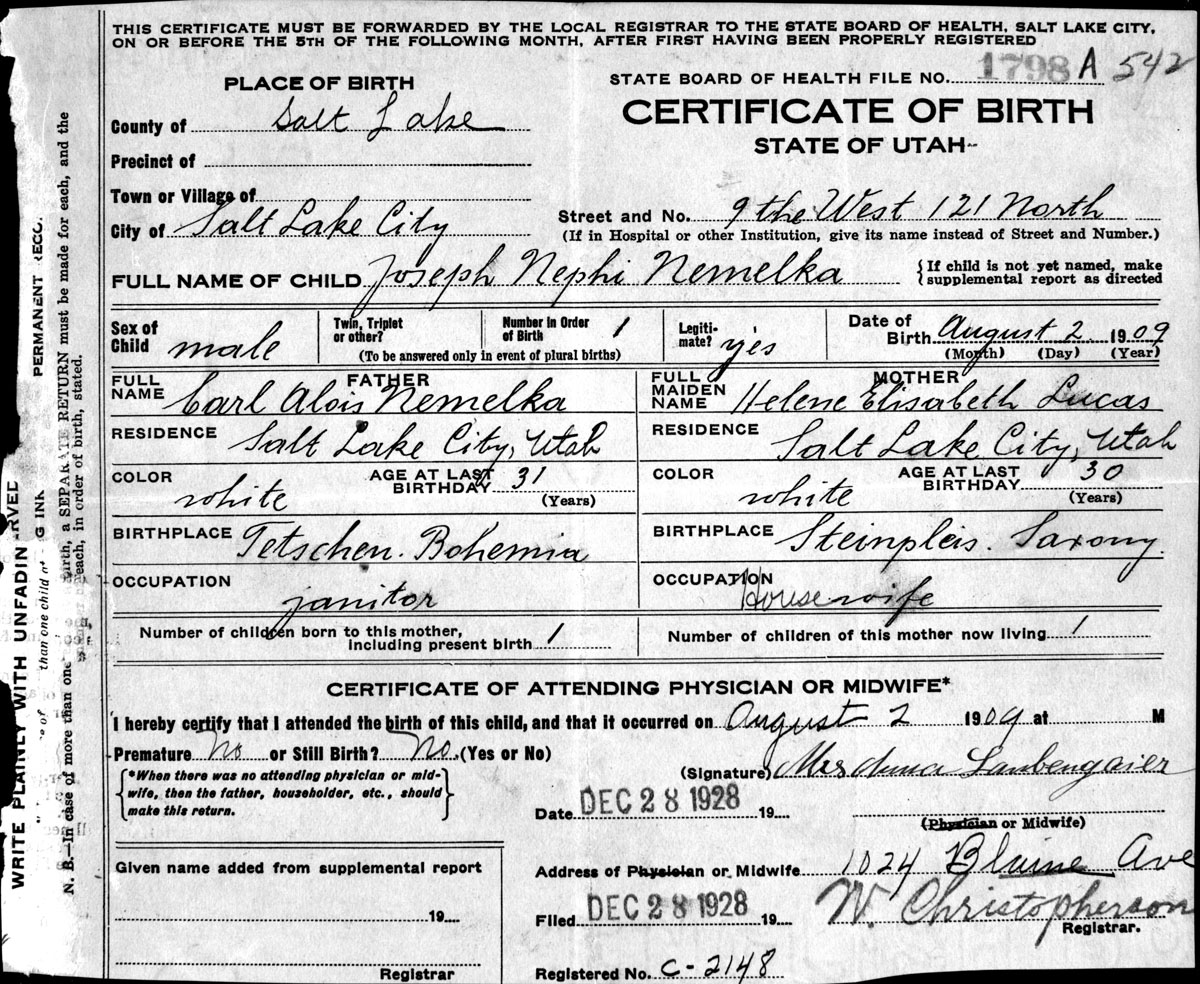 THIS CERTIFICATE MUST BE FORWARDED BY THE LOCAL REGISTRAR TO THE STATE BOARD OF HEALTH, SALT LAKE CITY,
ON OR BEFORE THE 5TH OF THE FOLLOWING MONTH, AFTER FIRST HAVING BEEN PROPERLY REGISTERED
PLACE OF BIRTH
STATE BOARD OF HEALTH FILE NO. 1798 A 542
County of Salt Lake
CERTIFICATE OF BIRTH
STATE OF UTAH
Precinct of
Town or Village of
City of Salt Lake City
Street and No. 9 the West 121 North
(If in Hospital or other Institution, give its name instead of Street and Number.)
FULL NAME OF CHILD Joseph Nephi Nemelka
{If child is not yet named, make
supplemental report as directed
Sex of Child male
Twin, Triplet or other?
Number in Order of Birth 1
(To be answered only in event of plural births)
Legiti-mate? yes
Date of Birth August 2 1909
(Month) (Day) (Year)
FATHER
FULL NAME Carl Alois Nemelka
MOTHER
FULL MAIDEN NAME Helene Elisabeth Lucas
RESIDENCE Salt Lake City, Utah
RESIDENCE Salt Lake City, Utah
COLOR white AGE AT LAST BIRTHDAY 31 (Years)
COLOR white AGE AT LAST BIRTHDAY 30 (Years)
BIRTHPLACE Tetschen. Bohemia
BIRTHPLACE Steinpleis. Saxony.
OCCUPATION janitor
OCCUPATION Housewife
Number of children born to this mother, including present birth 1
Number of children of this mother now living 1
CERTIFICATE OF ATTENDING PHYSICIAN OR MIDWIFE*
I hereby certify that I attended the birth of this child, and that it occurred on August 2 1909 at M
Premature No or Still Birth? No. (Yes or No)
{*When there was no attending physician or mid-
wife, then the father, householder, etc., should
make this return.}
(Signature) Mrs Anna Laubengaier
Date DEC 28 1928 19
(Physician or Midwife)
Address of Physician or Midwife 1024 Blaine Ave
Given name added from supplemental report
19
Registrar
Filed DEC 28 1928 19
W. Christopherson
Registrar.
Registered No. C-2148
WRITE PLAINLY WITH UNFADIN
PERMANENT
N. B.—In case of more than one
birth, a SEPARATE RETURN must be made for each, and the
each, in order of birth, stated.
than one child